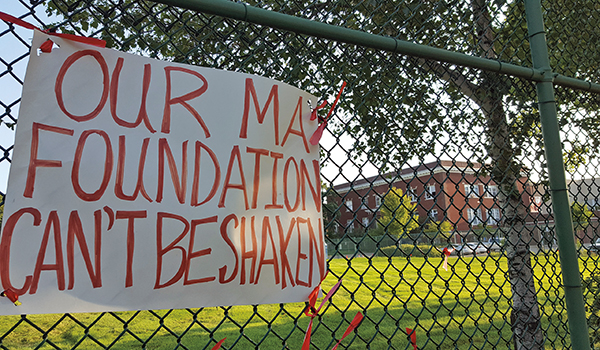 OUR MA
FOUNDATION
CAN'T BE SHAKEN